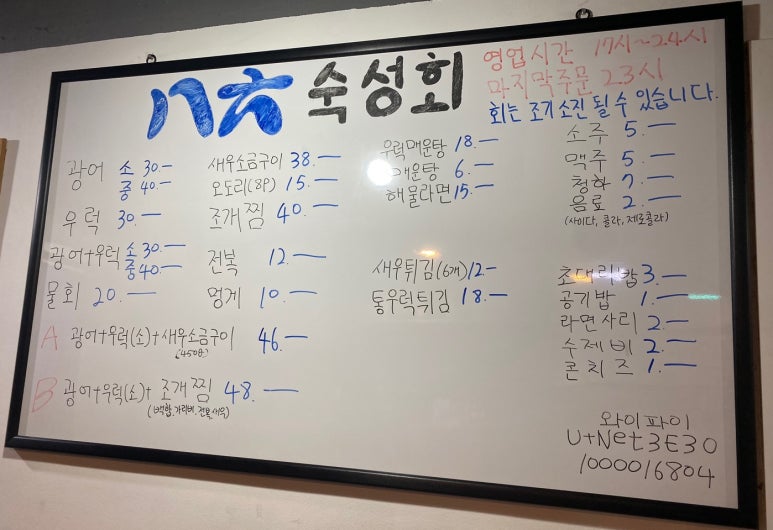 八六 숙성회
영업시간 17시~24시
마지막주문 23시
회는 조기소진 될 수 있습니다.
광어 소 30.-
중 40.-
우럭 30.-
광어+우럭 소 30.-
중 40.-
물회 20.-
새우소금구이 38.-
오도리(8P) 15.-
조개찜 40.-
전복 12.-
멍게 10.-
A 광어+우럭(소)+새우소금구이 46.-
(450g)
B 광어+우럭(소)+조개찜 48.-
(백합, 가리비, 전복, 새우)
우럭매운탕 18.-
매운탕 6.-
해물라면 15.-
새우튀김(6개) 12-
통우럭튀김 18.-
소주 5.-
맥주 5.-
청하 7.-
음료 2.-
(사이다, 콜라, 제로콜라)
초대리밥 3.-
공기밥 1.-
라면사리 2.-
수제비 2.-
콘치즈 1.-
와이파이
U+Net3E30
1000016804